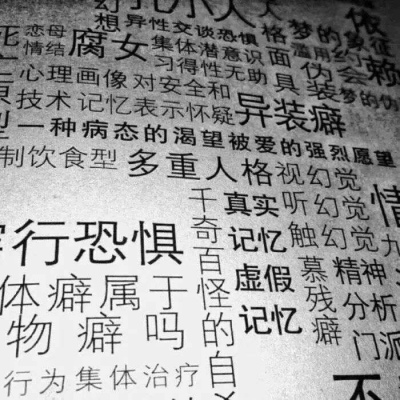 恋母
情结
腐女
想异性交谈恐惧
集体潜意识
习得性无助
格
面
具
梦的象征
滥用
伪会
装梦的伪
依
赖
心理画像
对安全和
技术
记忆表示怀疑
异装癖
型一种病态的渴望被爱的强烈愿望
制饮食型
多重人格
视幻觉
听幻觉
触幻觉
千奇百怪的自
真实
记忆
虚假
记忆
行恐惧
体癖属于
物癖吗
行为集体治疗
慕残癖
精神
分析
门派
九
情
不